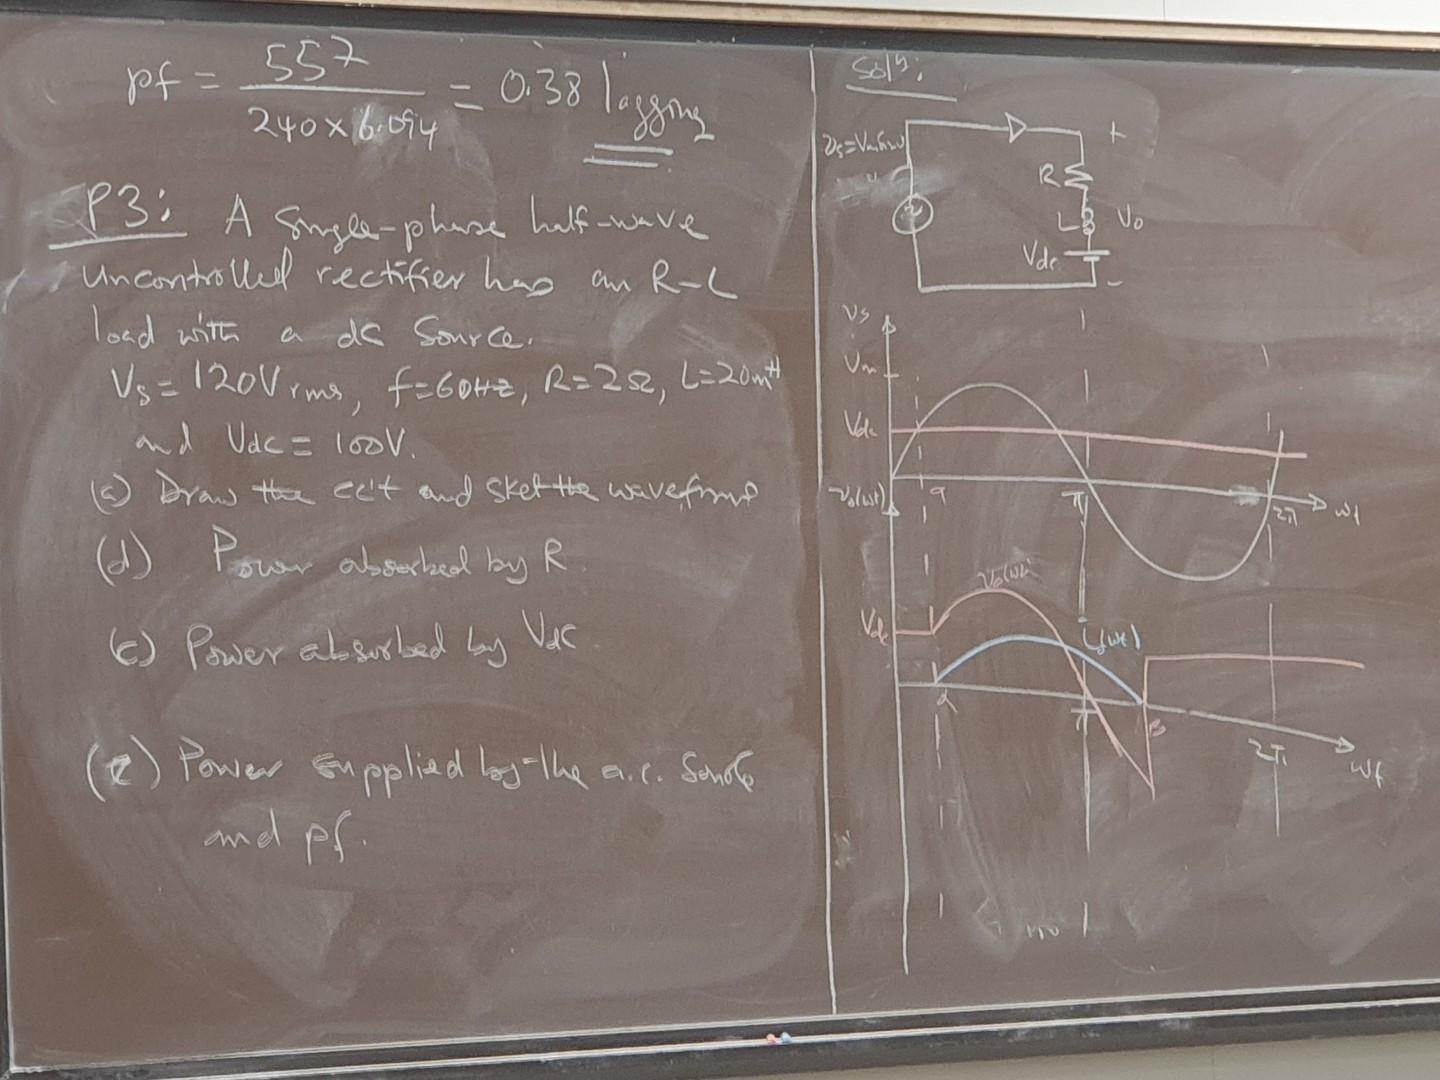 pf = 557 / 240 × 6.094 = 0.38 lagging
P3: A Single-phase half-wave
uncontrolled rectifier has an R-L
load with a dc Source.
Vs = 120Vrms, f=60Hz, R=2Ω, L=20mH
and Vdc = 100V.
(a) Draw the cct and sket the waveforms
(d) Power absorbed by R
(c) Power absorbed by Vdc
(e) Power supplied by the a.c. Source
and pf.
Solⁿ:
+
R
L
Vo
Vdc
-
Vs
Vm
Vdc
α
π
2π
ωt
vo(ωt)
vo(ωt)
Vdc
io(ωt)
α
π
β
2π
ωt